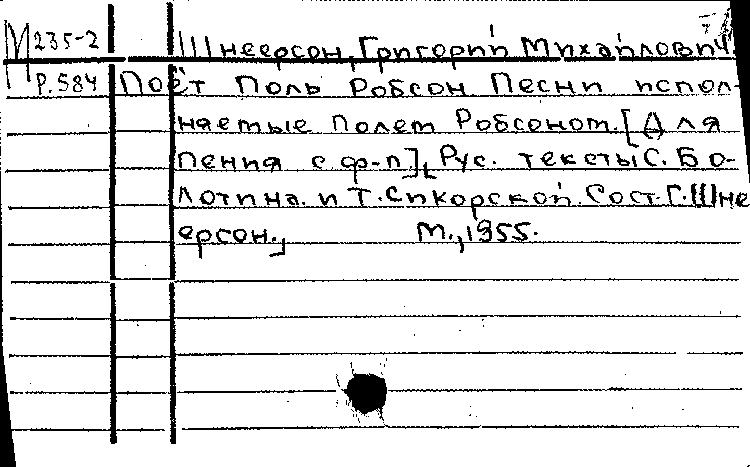 М 235-2 Шнеерсон, Григорий Михайлович.
Р.584 Поёт Поль Робсон Песни испол-
няемые Полем Робсоном. [Для
пения с ф-п], Рус. тексты С. Бо-
лотина. и Т. Сикорской Сост. Г. Шне
ерсон., М., 1955.